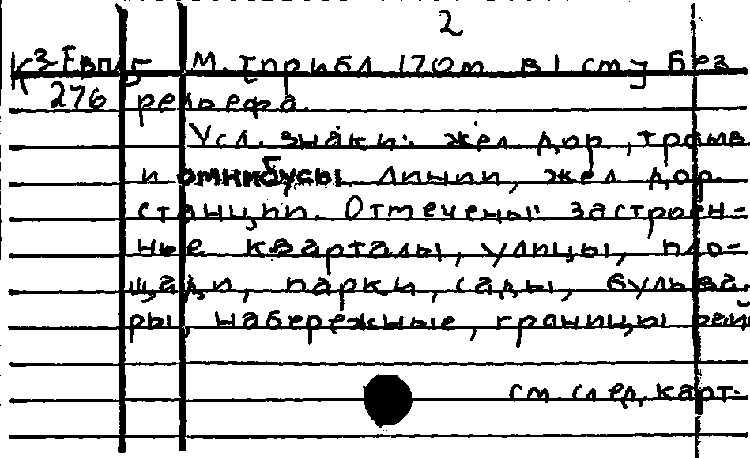 2
К3-Евп 5 М. [прибл 170m в 1 см] Без
276 рельефа.
Усл. знаки: жел дор, трамв.
и омнибусы линии, жел дор.
станции. Отмечены: застроен-
ные кварталы, улицы, пло-
щади, парки, сады, бульва.
ры, набережные, границы рей
см. след. карт.